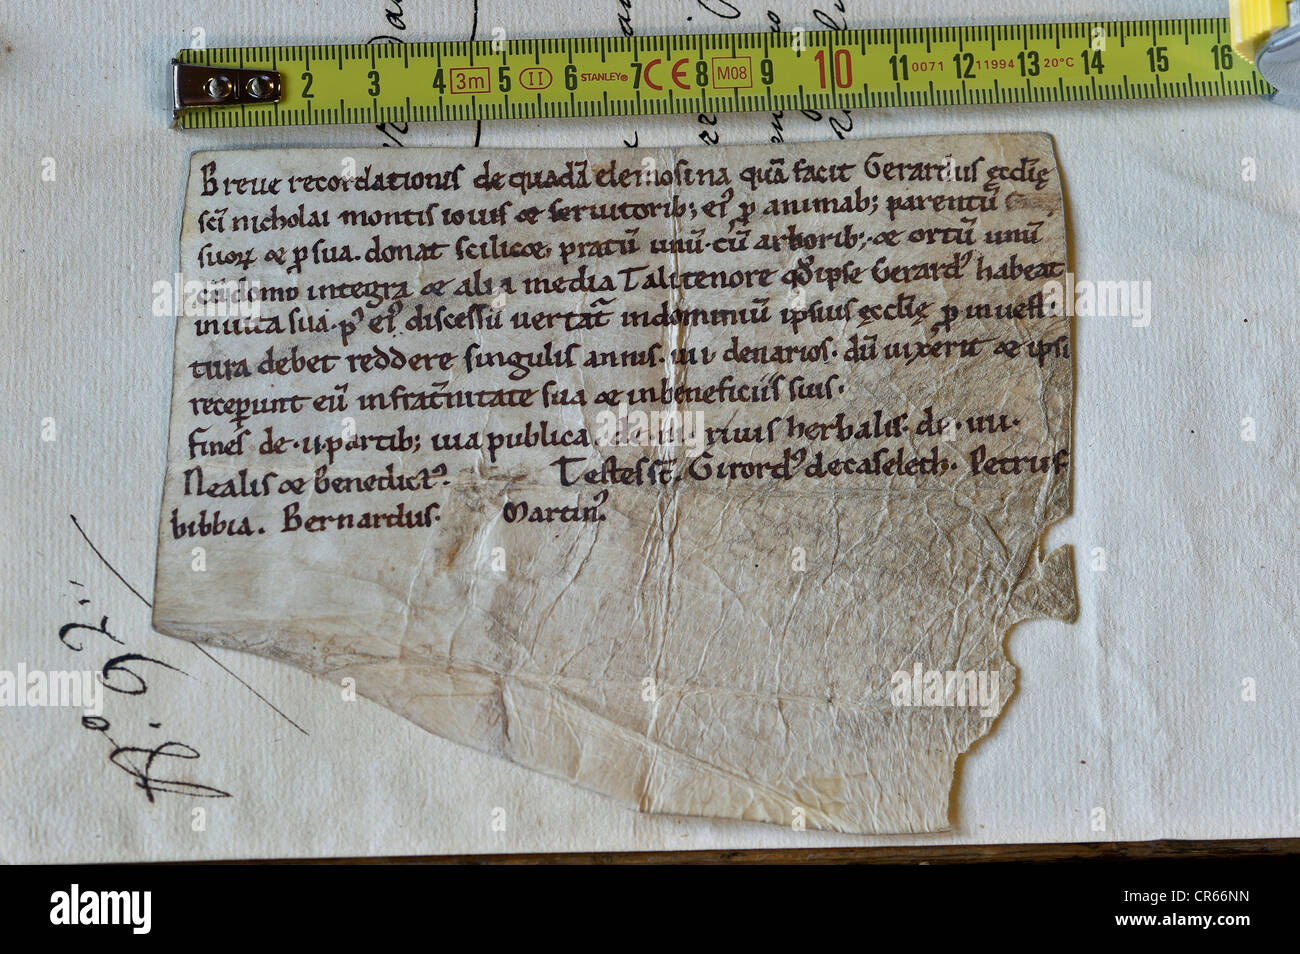 2 3 4 3m 5 II 6 STANLEY® 7 CE 8 M08 9 10 11 0071 12 11994 13 20°C 14 15 16
Breue recordationis de quadā elemosina quā facit Gerardus ęcclię
sc̄i nicholai montis iouis & seruitorib; ei᾽ p animab; parentū
suoꝝ & p sua. donat scilic&, pratū unū. cū arborib; & ortū unū
cū domo integra & alia media Tali tenore qđ ipse Gerard᾽ habeat
in uita sua. p᾽ ei᾽ discessū uertat̄ in dominiū ipsius ęcclię p inuesti
tura debet reddere singulis annis. iiii. denarios. dū uixerit & ipsi
receperunt eū in frat̄nitate sua & in beneficiis suis.
fines de. ii. partib; uia publica. de. iii. riuis herbalis. de. iiii.
Nealis & Benedict᾽. Testes st̄. Girord᾽ de caseleth. Petrus
bibbia. Bernardus. Martin᾽.
No. 92
a
alamy
alamy
Image ID: CR66NN
www.alamy.com